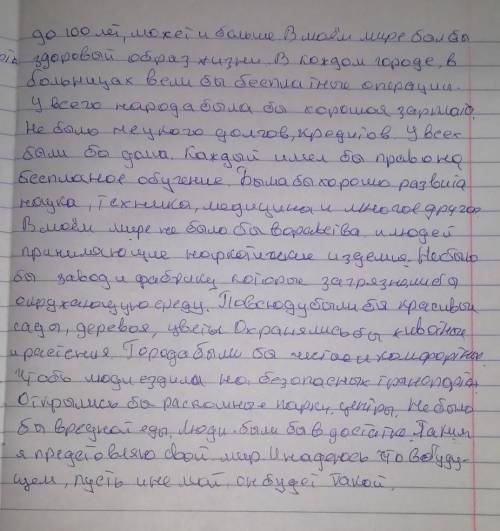 до 100 лет, может и больше. В моём мире бол бы
здоровый образ жизни. В каждом городе, в
больницах вели бы бесплатные операции.
У всего народа была бы хорошая зарплата.
Не было долгов, кредитов. У всех
были бо дома. Каждый имел бы право на
бесплатное обучение. Была бы хорошо развита
наука, техника, медицина и многое другое
В моём мире не было бы воравства, и людей
принимающие наркотические изделия. Не было
бы завод и фабрику которые загрязняли бы
окружающую среду. Повсюду были бы красивые
сады, деревоя, цветы. Охранялись бы животные
и растения. Города были бы чистое и комфортные.
Чтобы люди ездила на безопасных транспорта.
Открылись бы парки, центры. Не было
бы вредной еды. Люди были бы в достатке. Таким
я представляю свой мир. И надеюсь что в буду-
щем, пусть и не мой, он будет такой.